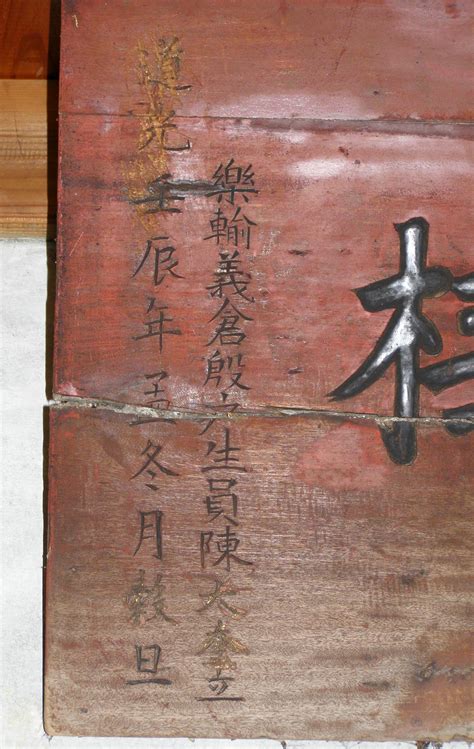 樂輸義倉殷戶生員陳大奎立
道光壬辰年孟冬月穀旦